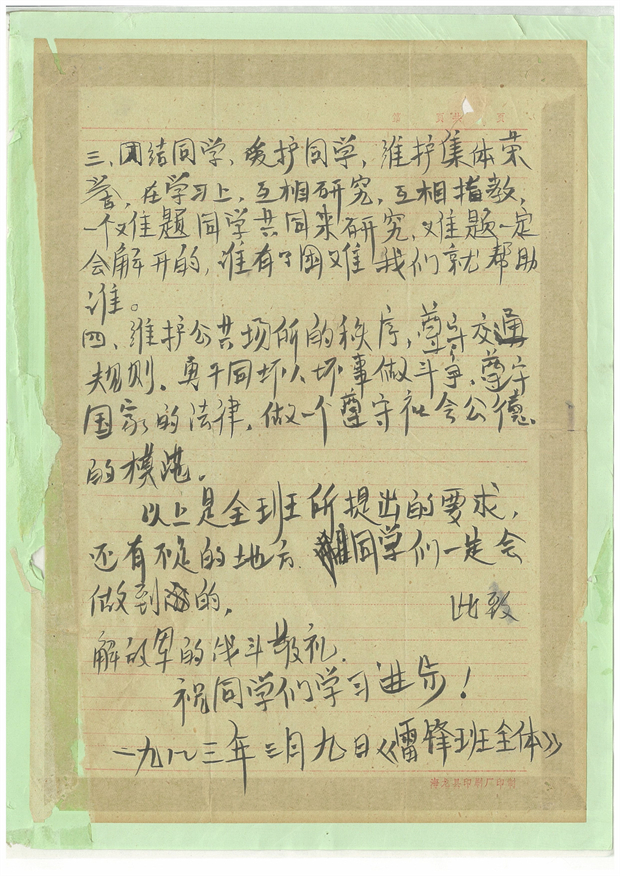 第 页 共 页
三、团结同学、爱护同学，维护集体荣
誉，在学习上，互相研究，互相指教，
一个难题同学共同来研究，难题一定
会解开的，谁有了困难我们就帮助
谁。
四、维护公共场所的秩序，尊守交通
规则，勇于同坏人坏事做斗争，尊守
国家的法律，做一个尊守社会公德
的模范。
以上是全班所提出的要求，
还有不足的地方 同学们一定会
做到的。 此致
解放军的战斗敬礼．
祝同学们学习进步！
一九八三年三月九日《雷锋班全体》
海龙县印刷厂印制